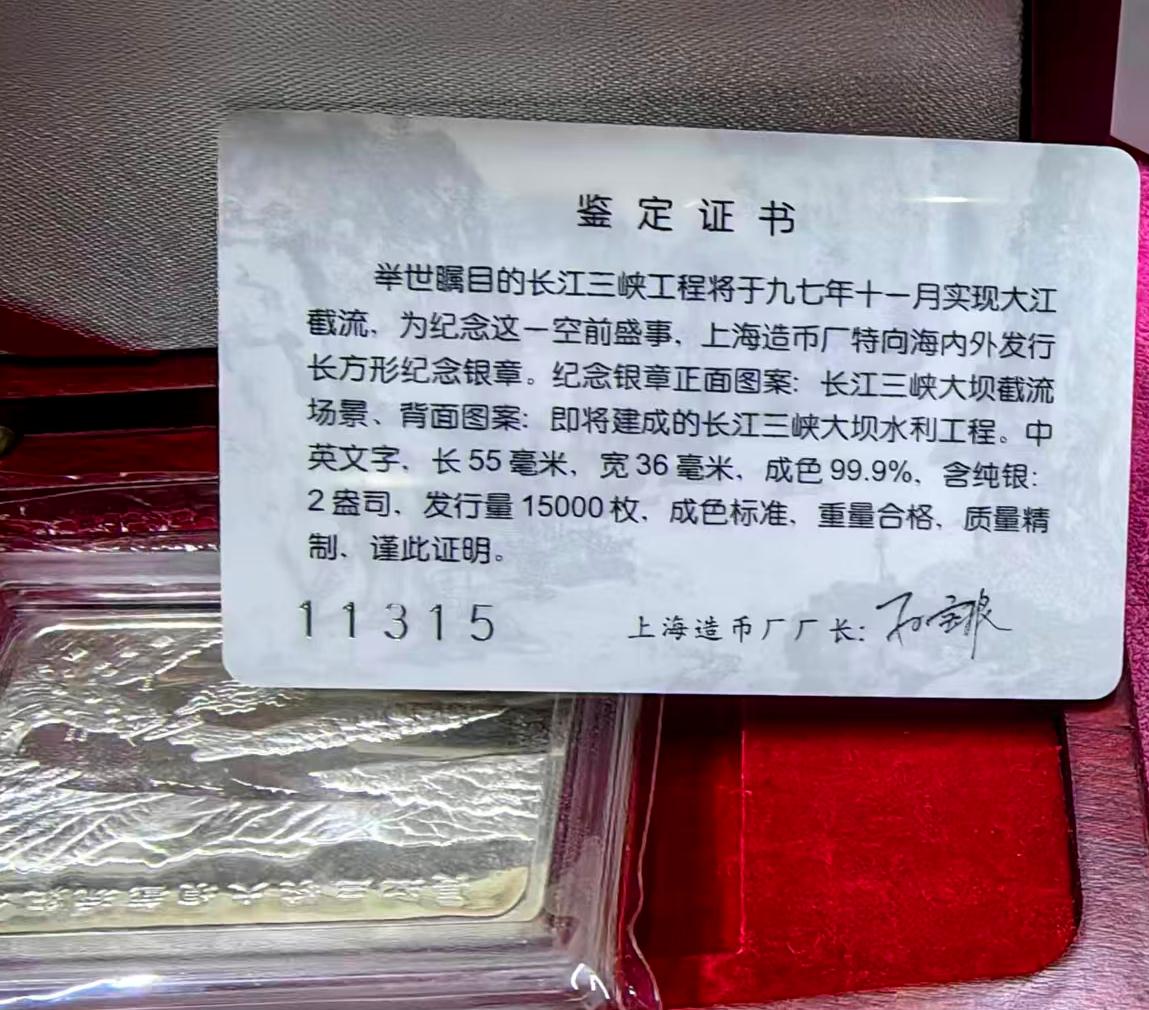 鉴定证书
举世瞩目的长江三峡工程将于九七年十一月实现大江
截流、为纪念这一空前盛事、上海造币厂特向海内外发行
长方形纪念银章。纪念银章正面图案：长江三峡大坝截流
场景、背面图案：即将建成的长江三峡大坝水利工程。中
英文字、长55毫米、宽36毫米、成色99.9%、含纯银：
2盎司、发行量15000枚、成色标准、重量合格、质量精
制、谨此证明。
11315
上海造币厂厂长：